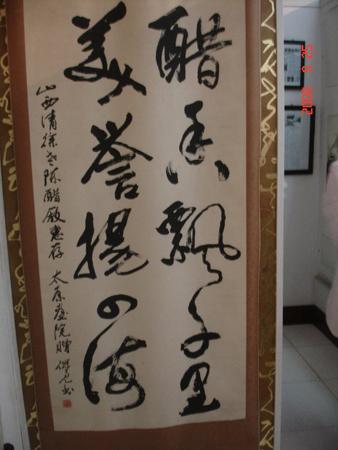 醋香飘千里
美誉扬四海
山西清徐老陈醋厰惠存
太原画院赠